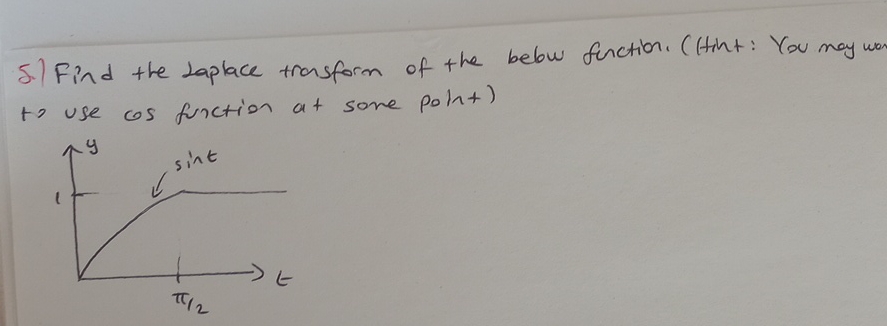 5.) Find the Laplace transform of the below function. (Hint: You may wan
to use cos function at some point)
y
sint
1
t
π/2